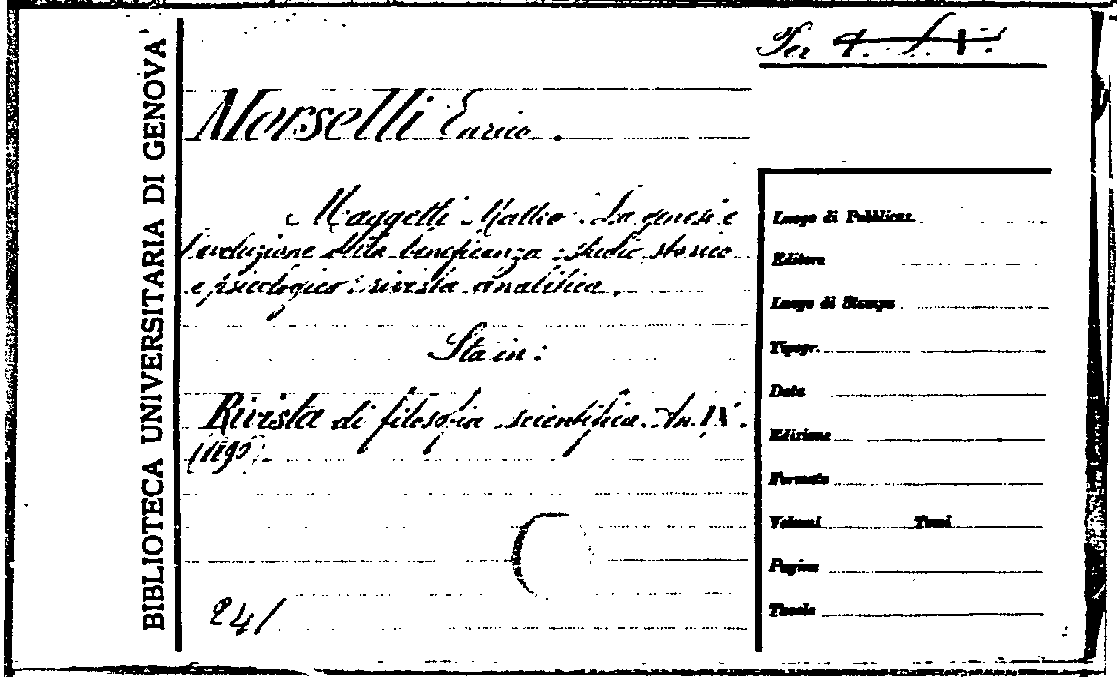 BIBLIOTECA UNIVERSITARIA DI GENOVA'
Per
Morselli Enrico.
Maggetti Matteo. La genesi e
l'evoluzione della beneficenza: studio storico
e psicologico: rivista analitica.
Sta in:
Rivista di filosofia scientifica. An. IX.
(1890).
241
Luogo di Pubblicaz.
Editore
Luogo di Stampa
Tipogr.
Data
Edizione
Formato
Volumi Tomi
Pagine
Tavole